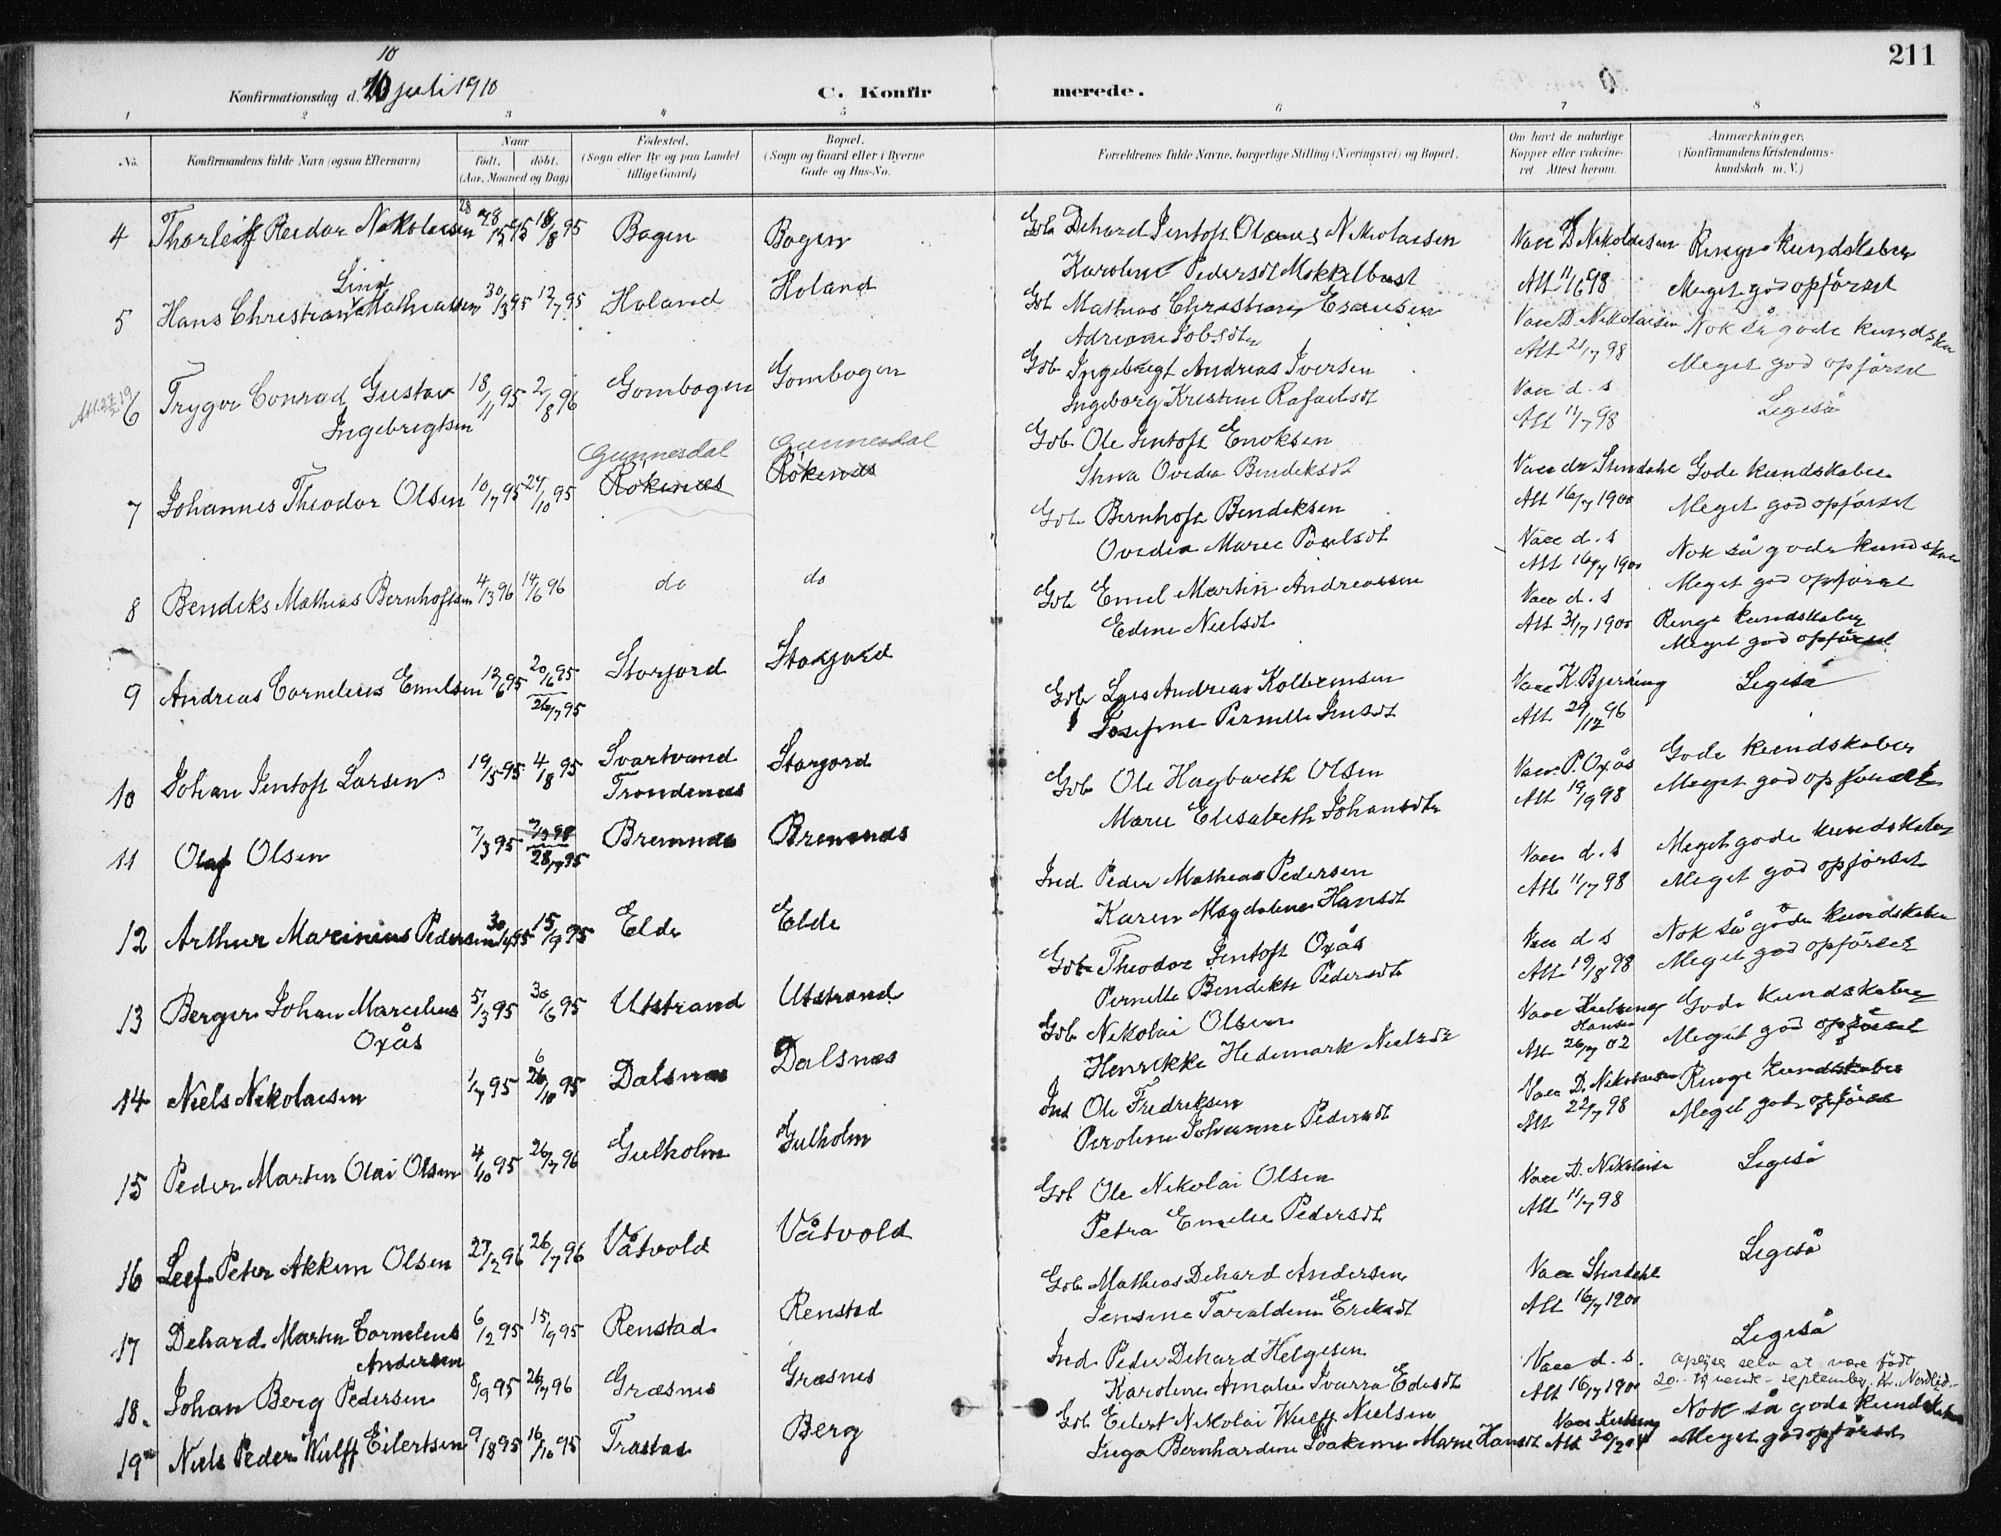 211
10
Konfirmationsdag d. 10 juli 1910
C. Konfirmerede.
1 2 3 4 5 6 7 8
No.
Konfirmandens fulde Navn (ogsaa Efternavn)
Naar
født, døbt.
(Aar, Maaned og Dag)
Fødested.
(Sogn eller By og paa Landet
tillige Gaard)
Bopæl.
(Sogn og Gaard eller i Byerne
Gade og Hus-No.
Forældrenes fulde Navne, borgerlige Stilling (Næringsvei) og Bopæl.
Om havt de naturlige
Kopper eller vakcine-
ret. Attest herom.
Anmærkninger,
(Konfirmandens Kristendoms-
kundskab m. V.)
4 Thorleif Reidar Nikolaisen 18/8 95 Bogen Bogen
Gdb Dehard Jentoft Olaus Nikolaisen
Karoline Pedersdt Mokkelbost
Vacc D Nikolaisen
Att 11/6 98
Ringe kundskaber
Meget god opførsel
5 Hans Christian Lind Mathiassen 30/3 95 12/7 95 Holand Holand
Gdb Mathias Christian Esausen
Adriane Jobsdtr
Vacc D. Nikolaisen
Att 21/7 98
Nok så gode kundska
Meget god opførsel
6 Trygve Conrad Gustav
Ingebrigtsen 18/11 95 2/8 96 Gombogen Gombogen
Gdb Ingebrigt Andreas Iversen
Ingeborg Kristine Rafaelsdt
Vacc d. s
Att 11/7 98
Ligeså
7 Johannes Theodor Olsen 10/7 95 27/10 95 Gunnesdal Gunnesdal
Røkenes Røkenes
Gdb. Ole Jentoft Enoksen
Ovedia Bendiksdt
Vacc dr Stendahl
Att 16/7 1900
Gode kundskaber
Meget god opførsel
8 Bendiks Mathias Bernhoftsen 4/3 96 14/6 96 do do
Gdb Bernhoft Bendiksen
Ovedia Marie Paulsdt
Vacc d. s
Att 16/7 1900
Nok så gode kundskaber
Meget god opførsel
9 Andreas Cornelius Emelsen 12/6 95 20/6 95
26/7 95 Storjord Storjord
Gdb Emel Martin Andreassen
Edine Nielsdt
Vacc d. s
Att 31/7 1900
Ringe kundskaber
Meget god opførsel
10 Johan Jentoft Larsen 19/5 95 4/8 95 Svartvand
Trondenes Storjord
Gdb Lars Andreas Kolbensen
Josefine Pernille Jensdt
Vacc K. Bjerking
Att 29/12 96
Ligeså
11 Olaf Olsen 7/3 95 28/7 95 Bremnes Bremnes
Gdb Ole Hagbarth Olsen
Marie Elisabeth Johansdtr
Vacc P. Oxås
Att 19/9 98
Gode kundskaber
Meget god opførsel
12 Arthur Marinius Pedersen 15/9 95 Elde Elde
Ind Peder Mathias Pedersen
Karen Magdalena Hansdt
Vacc d. s
Att 11/7 98
Meget gode kundskaber
Meget god opførsel
13 Berger Johan Marcelius
Oxås 5/3 95 30/6 95 Utstrand Utstrand
Gdb Theodor Jentoft Oxås
Pernille Bendikte Pedersdt
Vacc d s
Att 19/8 98
Nok så gode kundskaber
Meget god opførsel
14 Niels Nikolaisen 1/7 95 6/10 95 Dalsnes Dalsnes
Gdb Nikolai Olsen
Henrikke Hedemark Nielsdt
Vacc
Hansen
Att 26/7 02
Gode kundskaber
Meget god opførsel
15 Peder Martin Olai Olsen 4/10 95 26/7 96 Gulholm Gulholm
Ind Ole Fredriksen
Peroline Johanna Pedersdt
Vacc D. Nikolaisen
Att 22/7 98
Ringe kundskaber
Meget god opførsel
16 Leif Peter Akkim Olsen 27/2 96 26/7 96 Våtvold Våtvold
Gdb Ole Nikolai Olsen
Petra Emelie Pedersdt
Vacc D. Nikolaisen
Att 11/7 98
Ligeså
17 Dehard Martin Cornelius
Andersen 6/2 95 15/9 95 Renstad Renstad
Gdb Mathias Dehard Andersen
Jensine Taraldine Eriksdt
Vacc Stendahl
Att 16/7 1900
Ligeså
18. Johan Berg Pedersen 8/9 95 26/7 96 Græsnes Græsnes
Ind Peder Dehard Helgesen
Karoline Amalie Ivarra Edisdt
Vacc d. s.
Att 16/7 1900
Ligeså
oplyser selv at være født
20. tyvende september. Kr. Nordlid
19 Niels Peder Wulff Eilertsen 9/8 95 16/10 95 Trastad Berg
Gdb Eilert Nikolai Wulff Nielsen
Inga Bernhardine Joakime Marie Hansdt
Att 20/2 01
Nok så gode kundskaber
Meget god opførsel